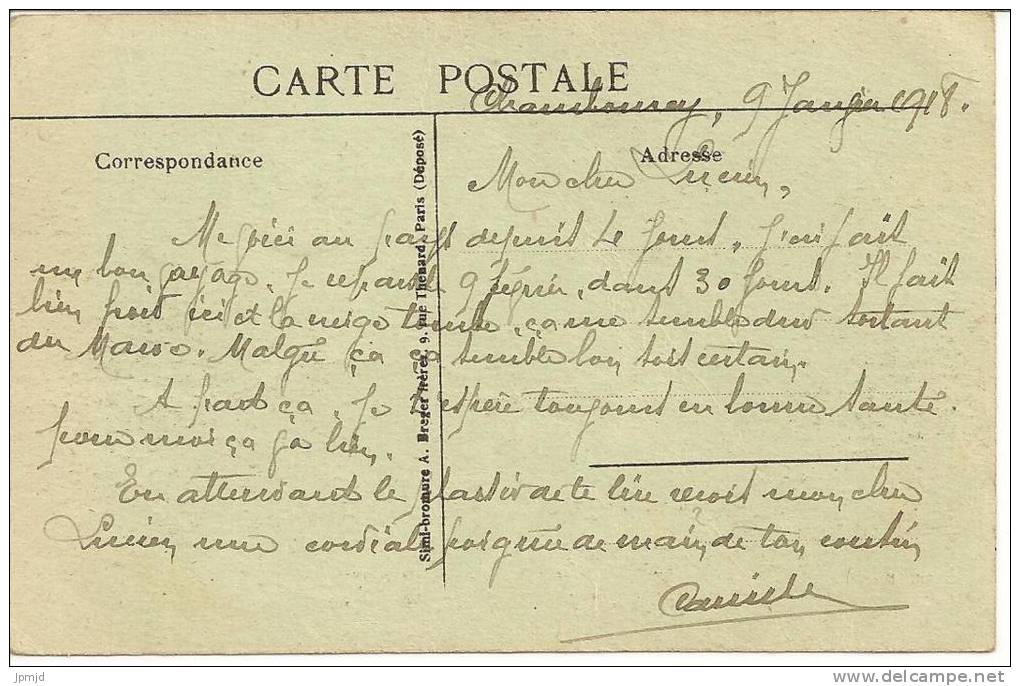 CARTE POSTALE
Chantonnay, 9 Janvier 1918.
Correspondance
Adresse
Mon cher Lucien,
Me voici au pays depuis 4 jours, j'ai fait
un bon voyage. Je repars le 9 Février, dans 30 jours. Il fait
bien froid ici et la neige tombe, ça me semble dur sortant
du Maroc. Malgré ça ça semble bon soit certain.
A part ça, je t'espère toujours en bonne santé.
pour moi ça va bien.
En attendant le plaisir de te lire reçoit mon cher
Lucien une cordiale poignée de main de ton cousin
Camille
Simi-bromure A. Breger frères, 9, rue Thénard, Paris (Déposé)
jpmjd
www.delcampe.net